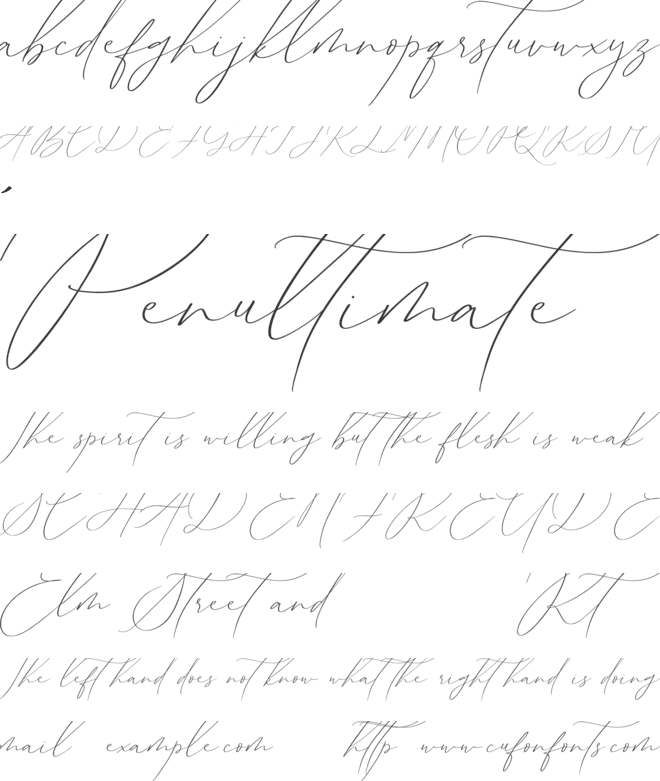 abcdefghijklmnopqrstuvwxyz
ABCDEFGHIJKLMNOPQRSTU
Penultimate
The spirit is willing but the flesh is weak
SCHADENFREUDE
Elm Street and 'Rt
The left hand does not know what the right hand is doing
mail example.com http www.cufonfonts.com